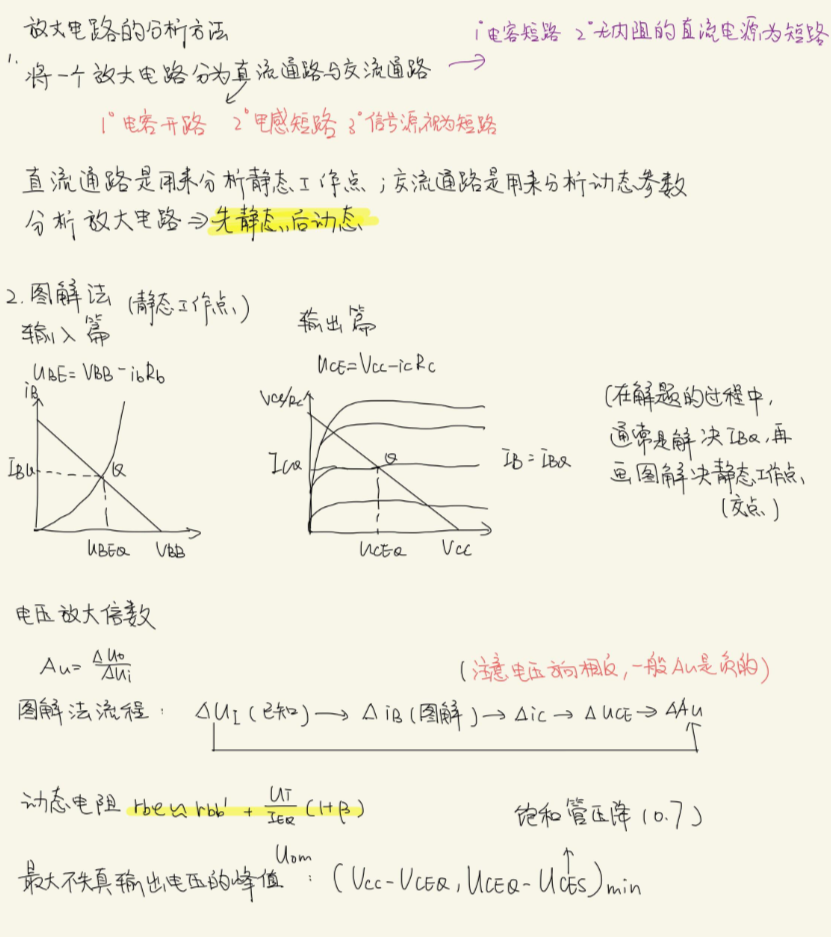 放大电路的分析方法
1° 电容短路 2° 无内阻的直流电源为短路
1. 将一个放大电路分为直流通路与交流通路 →
1° 电容开路 2° 电感短路 3° 信号源视为短路
直流通路是用来分析静态工作点；交流通路是用来分析动态参数
分析放大电路⇒先静态、后动态
2. 图解法 (静态工作点)
输入篇
输出篇
UBE=VBB-ibRb
UCE=VCC-icRc
iB
VCC/Rc
IBQ
Q
UBEQ
VBB
ICQ
Q
IB=IBQ
UCEQ
VCC
(在解题的过程中,
通常是解决IBQ,再
画图解决静态工作点
(交点)
电压放大倍数
Au=ΔUo/ΔUi
(注意电压方向相反,一般Au是负的)
图解法流程: ΔUI(已知)→ΔiB(图解)→Δic→ΔUCE→ΔAu
动态电阻 rbe≈rbb'+UT/IEQ(1+β)
饱和管压降(0.7)
最大不失真输出电压的峰值Uom: (VCC-VCEQ,UCEQ-UCES)min